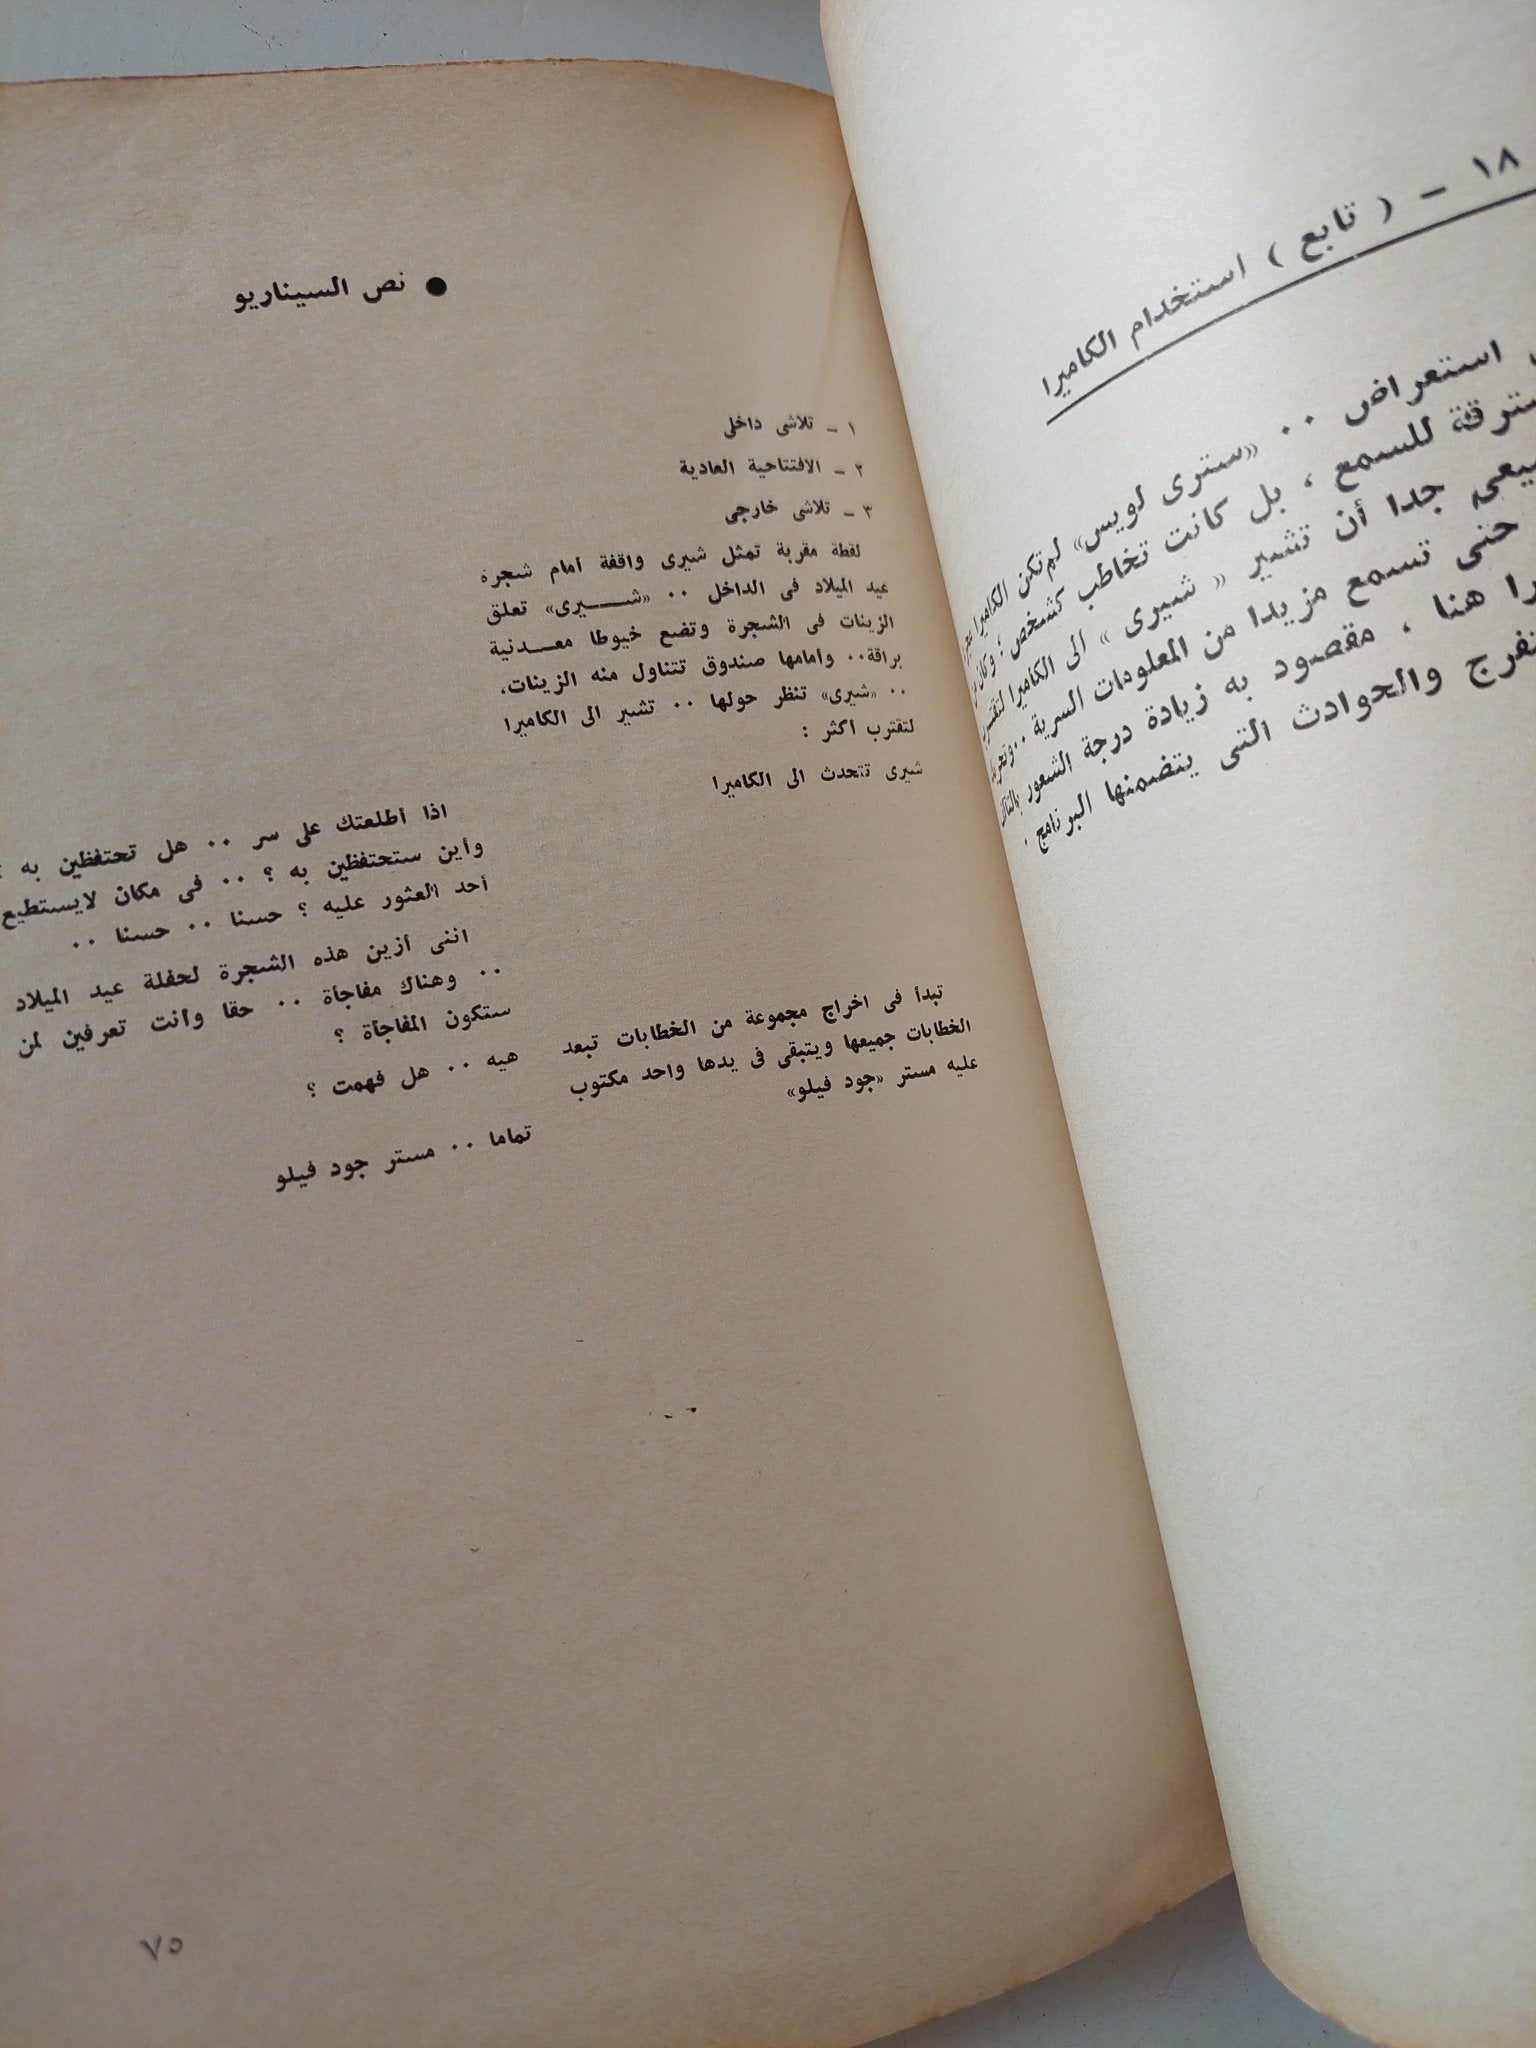 ١٨ - ( تابع ) استخدام الكاميرا
استعراض .. «سترى لويس» لم تكن الكاميرا
للسمع ، بل كانت تخاطب كشخص ؛
جدا أن تشير « شيرى » الى الكاميرا
حتى تسمع مزيدا من المعلومات السرية ..
هنا ، مقصود به زيادة درجة الشعور
والحوادث التى يتضمنها البرنامج .
● نص السيناريو
١ - تلاشى داخلى
٢ - الافتتاحية العادية
٣ - تلاشى خارجى
لقطة مقربة تمثل شيرى واقفة أمام شجرة
عيد الميلاد فى الداخل .. «شـــيرى» تعلق
الزينات فى الشجرة وتضع خيوطا معـدنية
براقة.. وأمامها صندوق تتناول منه الزينات،
.. «شيرى» تنظر حولها .. تشير الى الكاميرا
لتقترب أكثر :
شيرى تتحدث الى الكاميرا
اذا أطلعتك على سر .. هل تحتفظين به ؟
وأين ستحتفظين به ؟ .. فى مكان لايستطيع
أحد العثور عليه ؟ حسنا .. حسنا ..
اننى أزين هذه الشجرة لحفلة عيد الميلاد
.. وهناك مفاجأة .. حقا وانت تعرفين لمن
ستكون المفاجأة ؟
هيه .. هل فهمت ؟
تبدأ فى اخراج مجموعة من الخطابات تبعد
الخطابات جميعها ويتبقى فى يدها واحد مكتوب
عليه مستر «جود فيلو»
تماما .. مستر جود فيلو
٧٥